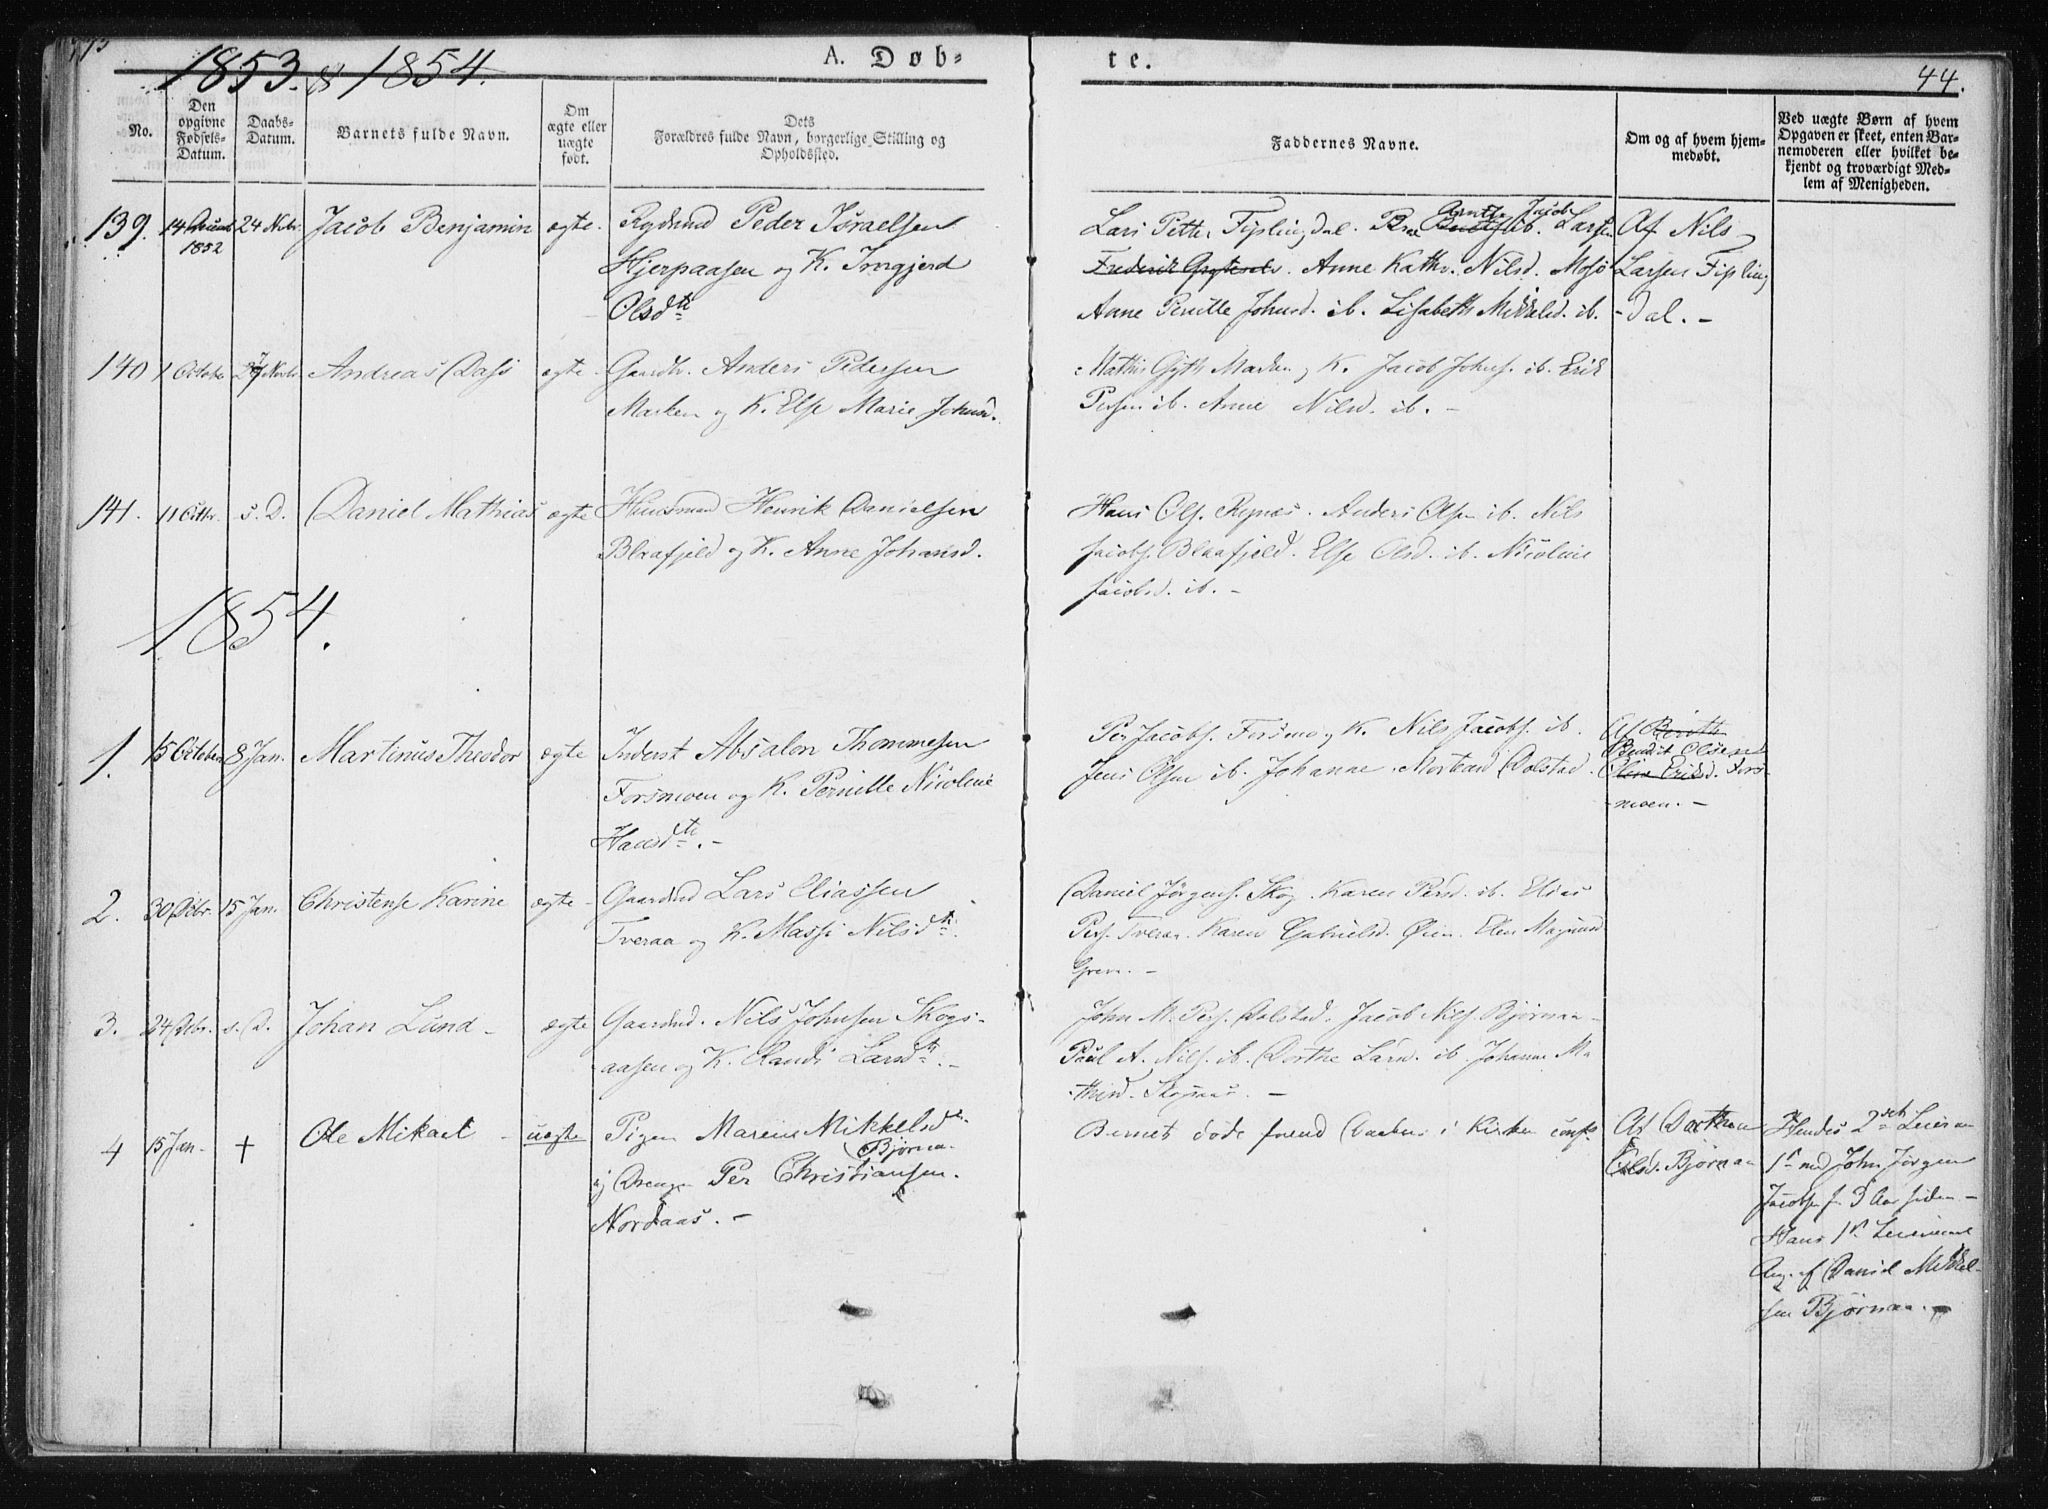 1853 & 1854.
A. Døb-
te.
44.
No.
Den opgivne Fødsels-Datum.
Daabs-Datum.
Barnets fulde Navn.
Om ægte eller uægte født.
Dets Forældres fulde Navn, borgerlige Stilling og Opholdssted.
Faddernes Navne.
Om og af hvem hjem-medøbt.
Ved uægte Børn af hvem Opgaven er skeet, enten Bar-nemoderen eller hvilket be-kjendt og troværdigt Med-lem af Menigheden.
139. 14 1852 24 Novbr. Jacob Benjamin ægte. Rydnmd Peder Israelsen
Hjerpaasen og K. Imgjerd
Olsdtr
Lars Petter Fiplingdal. Larsen
Anne Kathr. Nilsd. Mosø
Anne Pernille Johnsd. ib. Lisabeth Mikkelsd. ib.
Af Nils
Larsen Fipling
-dal. -
140 1 October 27 Novbr Andreas Dass ægte - Gaardbr. Anders Pedersen
Marken og K. Else Marie Johnsd.
Mathis Marken og K. Jacob Johns. ib. Erik
Persen ib. Anne Nilsd. ib. -
141. 11 Octbr. s. D. Daniel Mathias ægte Huusmand Henrik Danielsen
Blaafjeld og K. Anne Johansd.
Hans Ols. Rynes. Anders Olsen ib. Nils
Jacobs. Blaafjeld. Else Olsd. ib. Nicoline
Jacobsd. ib. -
1854.
1. 15 October 8 Jan. Martinus Theodor ægte Inderst Absalon Thommesen
Forsmoen og K. Pernille Nicoline
Hansdtr. -
Per Jacobs. Forsmo og K. Nils Jacobs. ib.
Jens Olsen ib. Johanne Dolstad.
Af Berith
Bendik Olsen
Olsen Eriksd. Fors-
-moen. -
2. 30 Octbr. 15 Jan. Christense Karine ægte - Gaardmd Lars Eliassen
Tveraa og K. Massi Nilsdtr.
Daniel Jörgens. Skog. Karen Persd. ib. Elias
Pers. Tveraa. Karen Gabrielsd. Øien. Elen
-
3. 24 s. D. Johan Lund - ægte Gaardmd. Nils Johnsen Skogs-
aasen og K. Randi Larsdtr. -
John M. Pers. Dolstad. Jacob Nils. Björnaa -
Paul A. Nils. ib. Dorthe Larsd. ib. Johanne Ma-
-thisd. Skogaas. -
4 15 Jan. + Ole Mikael - uægte Pigen Maren Mikkelsdtr
Björnaa.
og Dreng Per Christiansen.
Nordaas. -
Barnet døde forend Daaben i Kirken
Af Dorthea
Olsd. Björnaa
Hendes 2det Leierm
1st med John Jörgen
Jacobsen for 3 Aar siden -
Hans 1st Leiermaal
Ang. af Daniel Mikkel-
sen Björnaa. -